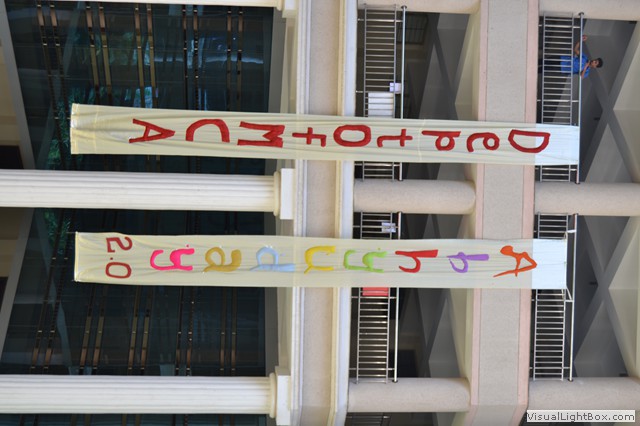 Dept OF MCA
Abhyuday 2.0
VisualLightBox.com